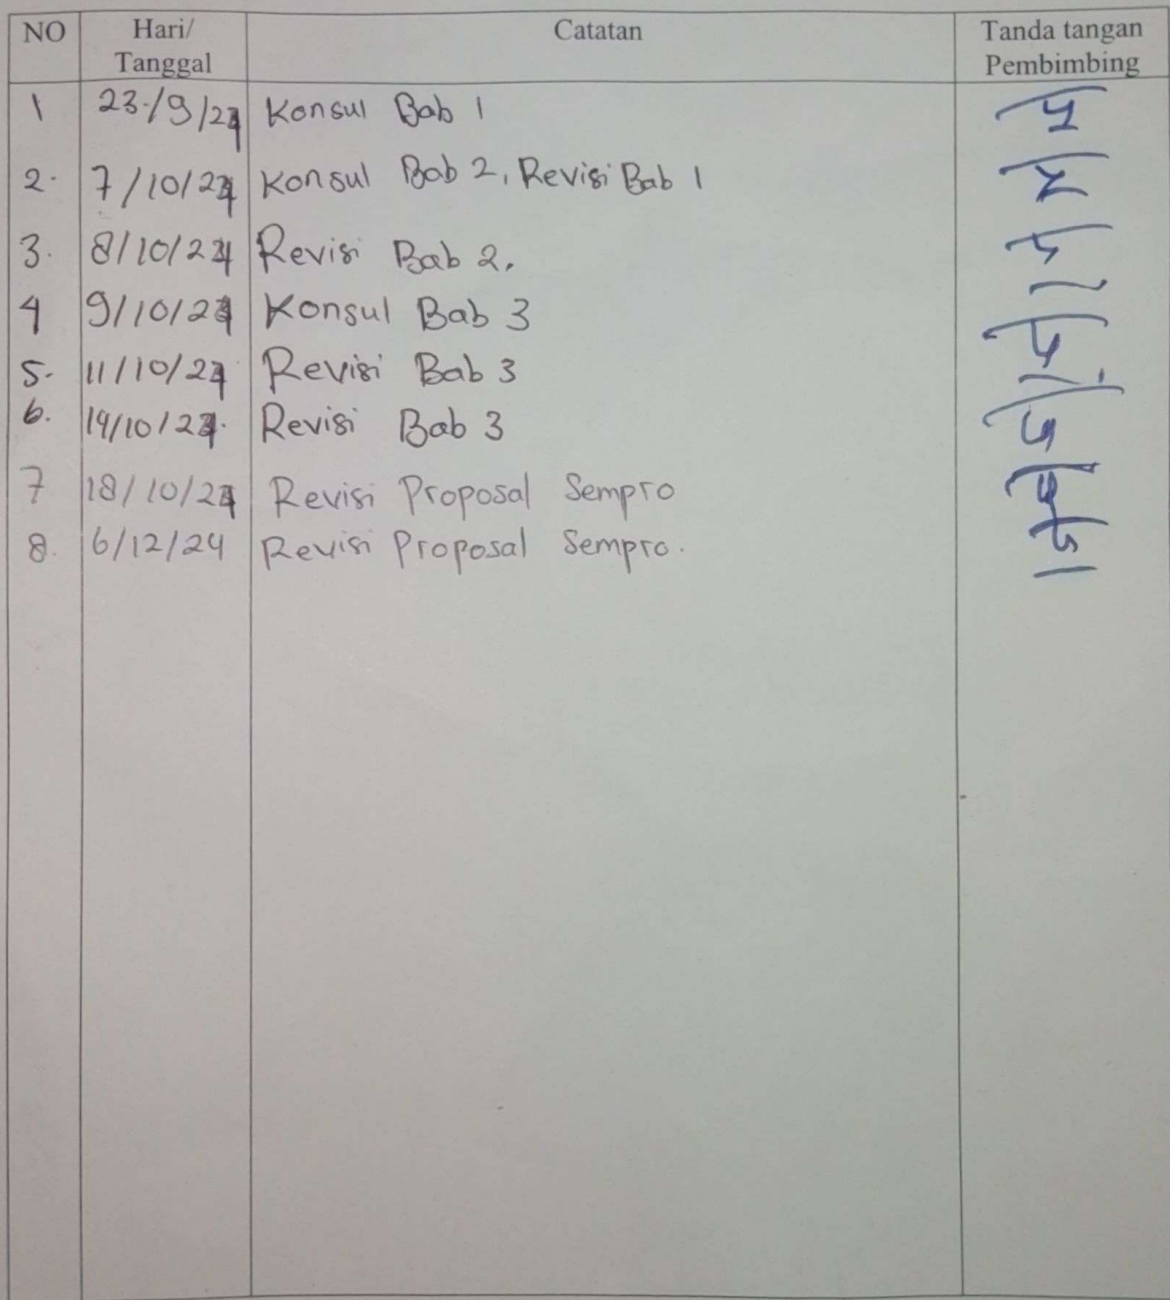 NO Hari/ Tanggal Catatan Tanda tangan Pembimbing
1 23/9/24 Konsul Bab 1
2. 7/10/24 Konsul Bab 2, Revisi Bab 1
3. 8/10/24 Revisi Bab 2.
4 9/10/24 Konsul Bab 3
5. 11/10/24 Revisi Bab 3
6. 14/10/24. Revisi Bab 3
7 18/10/24 Revisi Proposal Sempro
8. 6/12/24 Revisi Proposal Sempro.